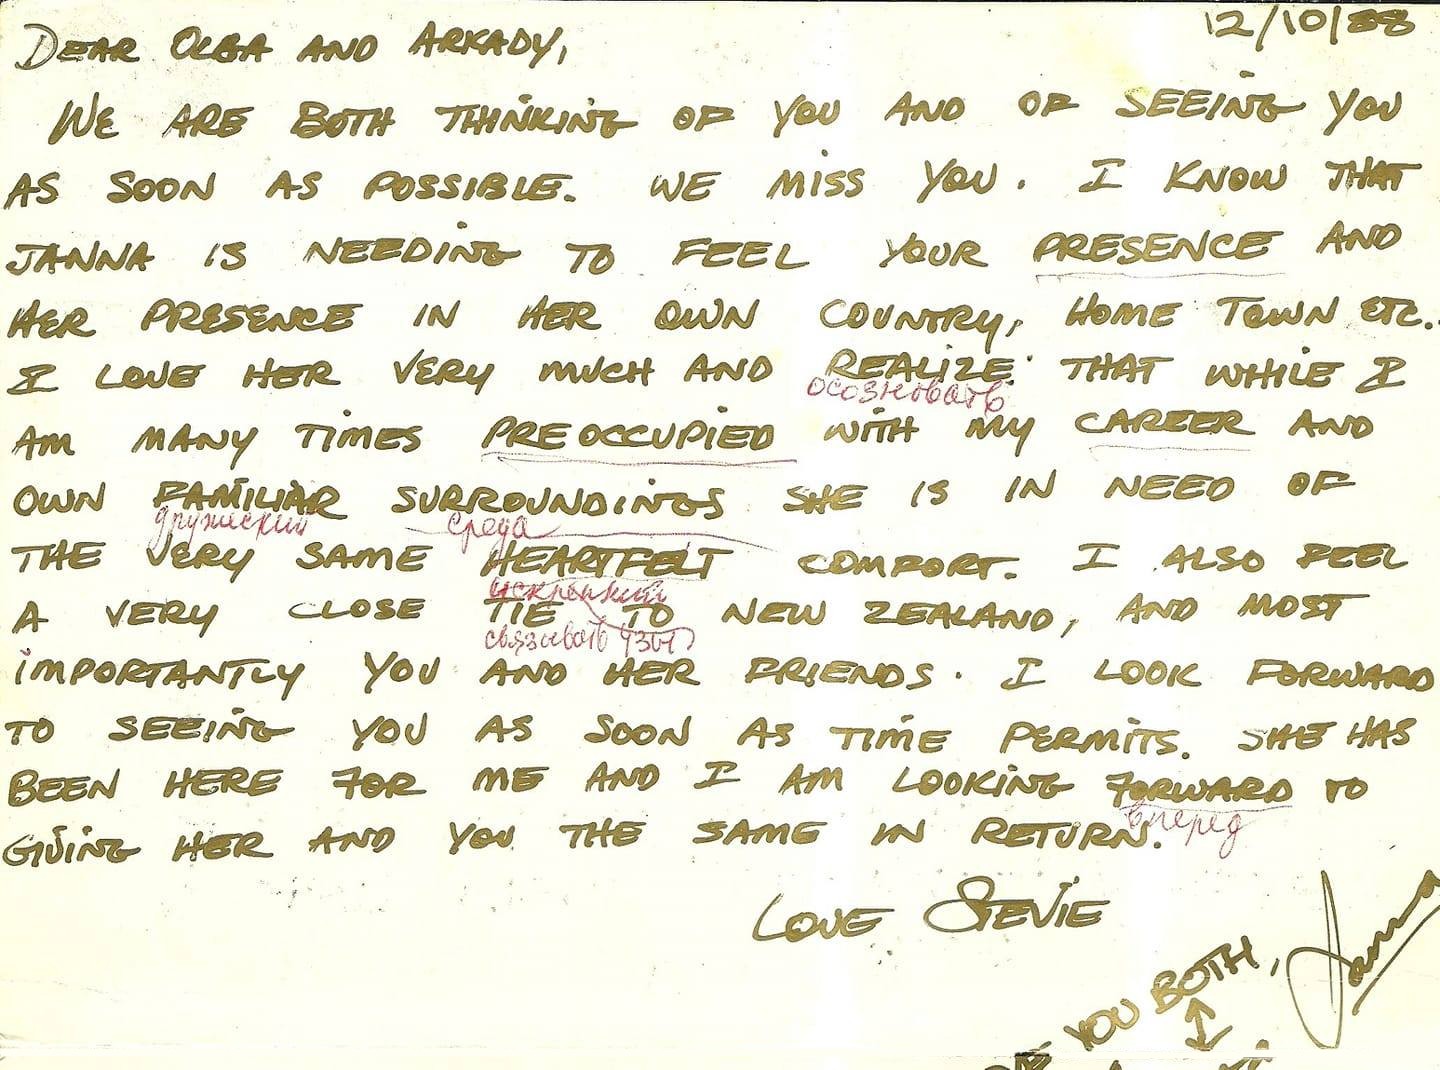 12/10/88
DEAR OLGA AND ARKADY,
WE ARE BOTH THINKING OF YOU AND OF SEEING YOU
AS SOON AS POSSIBLE. WE MISS YOU. I KNOW THAT
JANNA IS NEEDING TO FEEL YOUR PRESENCE AND
HER PRESENCE IN HER OWN COUNTRY, HOME TOWN ETC..
I LOVE HER VERY MUCH AND REALIZE THAT WHILE I
осозновать
AM MANY TIMES PREOCCUPIED WITH MY CAREER AND
OWN FAMILIAR SURROUNDINGS SHE IS IN NEED OF
дружеский среда
THE VERY SAME HEARTFELT COMFORT. I ALSO FEEL
искренний
A VERY CLOSE TIE TO NEW ZEALAND, AND MOST
связовать узы
IMPORTANTLY YOU AND HER FRIENDS. I LOOK FORWARD
TO SEEING YOU AS SOON AS TIME PERMITS. SHE HAS
BEEN HERE FOR ME AND I AM LOOKING FORWARD TO
вперед
GIVING HER AND YOU THE SAME IN RETURN.
LOVE STEVIE
YOU BOTH,
Janna